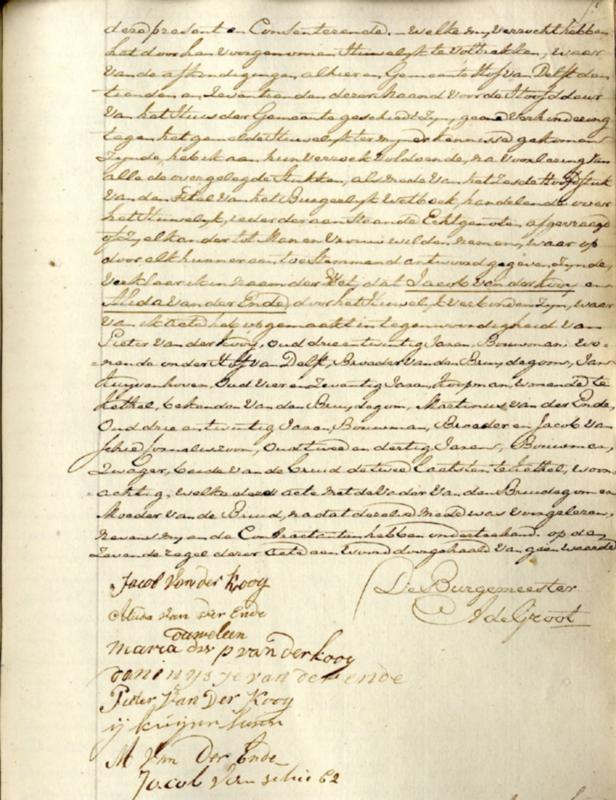 deze present en Consenteerende. – Welke my verzocht hebben
het door hen voorgenomen Huwelyk te Voltrekken, waar
van de afkondigingen alhier en Gemeente Hof van Delft den
tienden en Zeventienden dezer Maand Voor de Hoofddeur
van het Huis der Gemeente geschied Zyn, geene Verhindering
tegen het gemelde Huwelyk ter myner kennisse gekomen
Zynde, heb ik aan hun verzoek Voldoende, na Voorlezing van
alle de overgelegde Stukken, als mede Van het Zesde Hoofdstuk
van den Titel van het Burgerlyk Wetboek, handelende over
het Huwelyk, ieder der aanstaande Echtgenoten afgevraagd
of Zy elkander tot Man en Vrouw wilden neemen, waar op
door elk hunner een toestemmend antwoord gegeven Zynde
Verklaar ik in naam der Wet, dat Jacob van der Kooy en
Alida Van der Ende, door het huwelyk Verbonden Zyn, waar
van ik acte heb opgemaakt in tegenwoordigheid van
Pieter Van der Kooy, oud drieentwintig Jaren, Bouwman, Wo-
nende onder Hof van Delft, Broeder Van den Bruidegom, Jan
Kuyvenhoven, Oud Vier en Zeventig Jaren, Koopman, Wonende te
Kethel, bekenden Van den Bruidegom, Martinus van der Ende,
Oud drie en twintig Jaren, Bouwman, Broeder en Jacob Van
Schie Corneliszoon, Oud twee en dertig Jaren, Bouwman,
Zwager, beide Van de bruid de twee laatsten te Kethel, woon
achtig, welke deze acte met de Vader Van den Bruidegom en
Moeder Van de Bruid, nadat dezelve mede was Voorgelezen,
nevens my en de Contractanten hebben onderteekend. op den
Zevende regel dezer acte een Woord doorgehaald Van geen waarde
Jacob Van der Kooy
Alida van der Ende
ouweleen
maria p van der kooy
van der ende
Pieter Van Der Kooy
M Van Der Ende
Jacob Van schie Cz
De Burgemeester
A de Groot